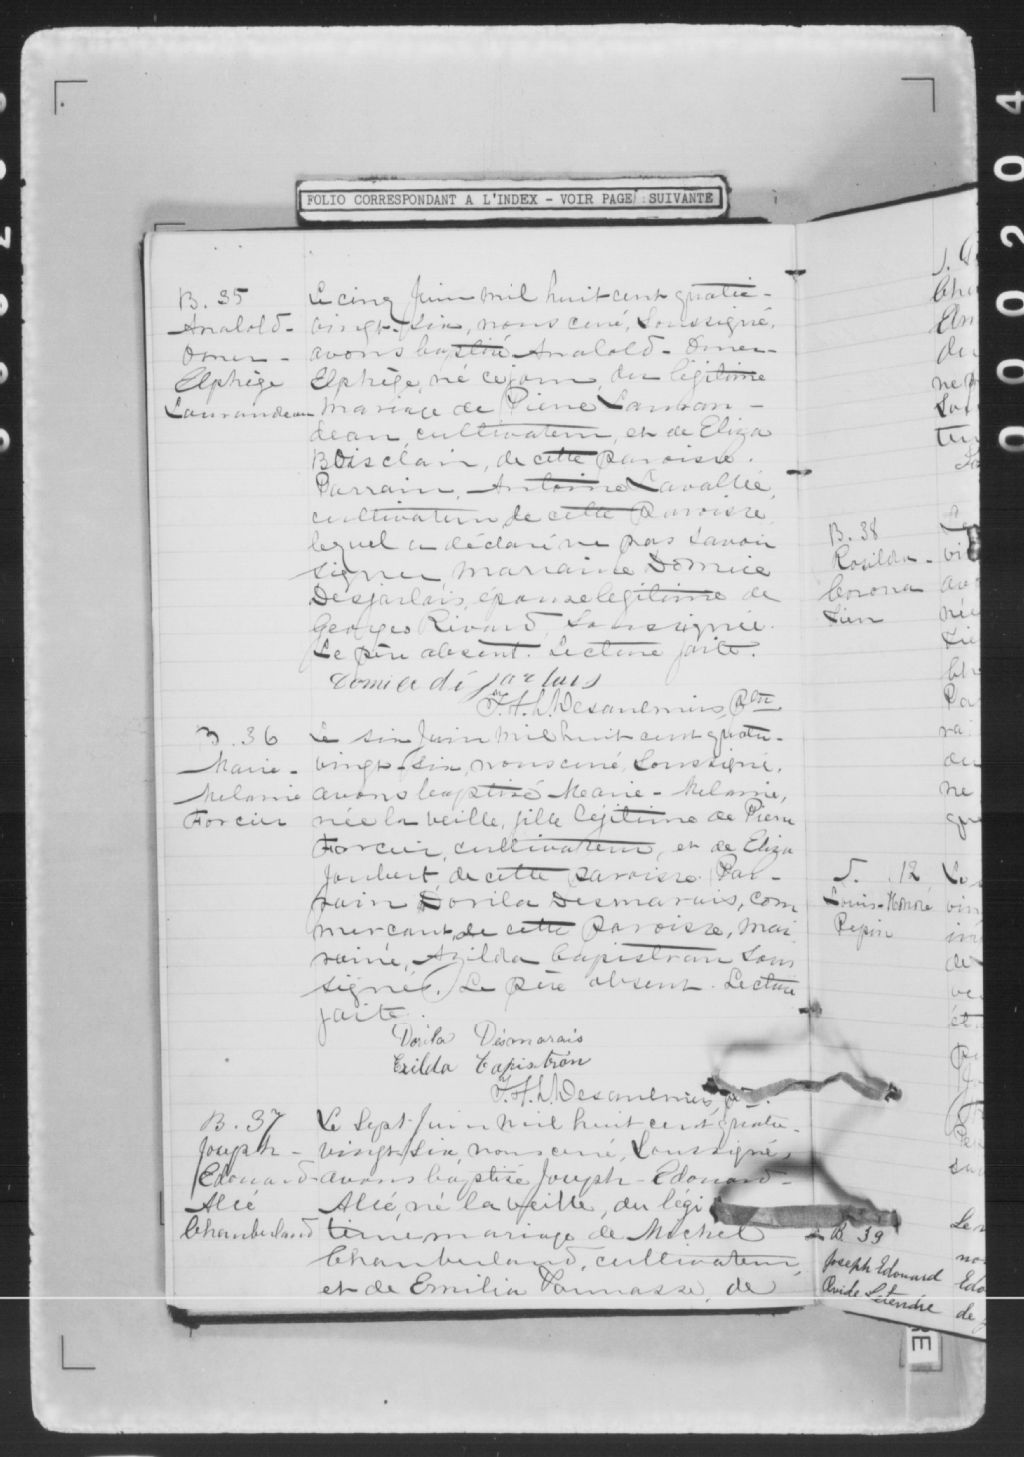 FOLIO CORRESPONDANT A L'INDEX - VOIR PAGE SUIVANTE
B. 35
Analold-
Omer-
Elphège
Laurandeau
Le cinq Juin mil huit cent quatre-
vingt-six, nous curé, soussigné,
avons baptisé Analold-Omer-
Elphège, né ce jour, du légitime
mariage de Pierre Lauran-
deau, cultivateur, et de Eliza
Boisclair, de cette paroisse.
Parrain, Antoine Lavallée,
cultivateur de cette paroisse
lequel a déclaré ne pas savoir
signer, marraine Domice
Desjarlais, épouse légitime de
Georges Rivard, soussignée.
Le père absent. Lecture faite.
Domice déjarlais
F.H.L. Desaulniers, Ptre
B. 36
Marie-
Melanie
Forcier
Le six Juin mil huit cent quatre-
vingt-six, nous curé, soussigné,
avons baptisé Marie-Melanie,
née la veille, fille légitime de Pierre
Forcier, cultivateur, et de Eliza
Joubert, de cette paroisse. Par-
rain Dorila Desmarais, com
merçant, de cette paroisse, mar
raine, Azilda Capistran sous
signé(.) Le père absent. Lecture
faite.
Dorila Désmarais
Exilda Capistrán
F.H.L. Desaulniers, p
B. 37
Joseph-
Edouard-
Alcé
Chamberland
Le Sept Juin mil huit cent quatre-
vingt six, nous curé, soussigné,
avons baptisé Joseph-Edouard-
Alcé, né la veille, du légi
time mariage de Michel
Chamberland, cultivateur,
et de Emilia Vannasse, de
B. 38
Rosilda-
Corona
Sien
S. 12
Louis-Honoré
Pepin
B 39
Joseph Edouard
Ovide Letendre
00204